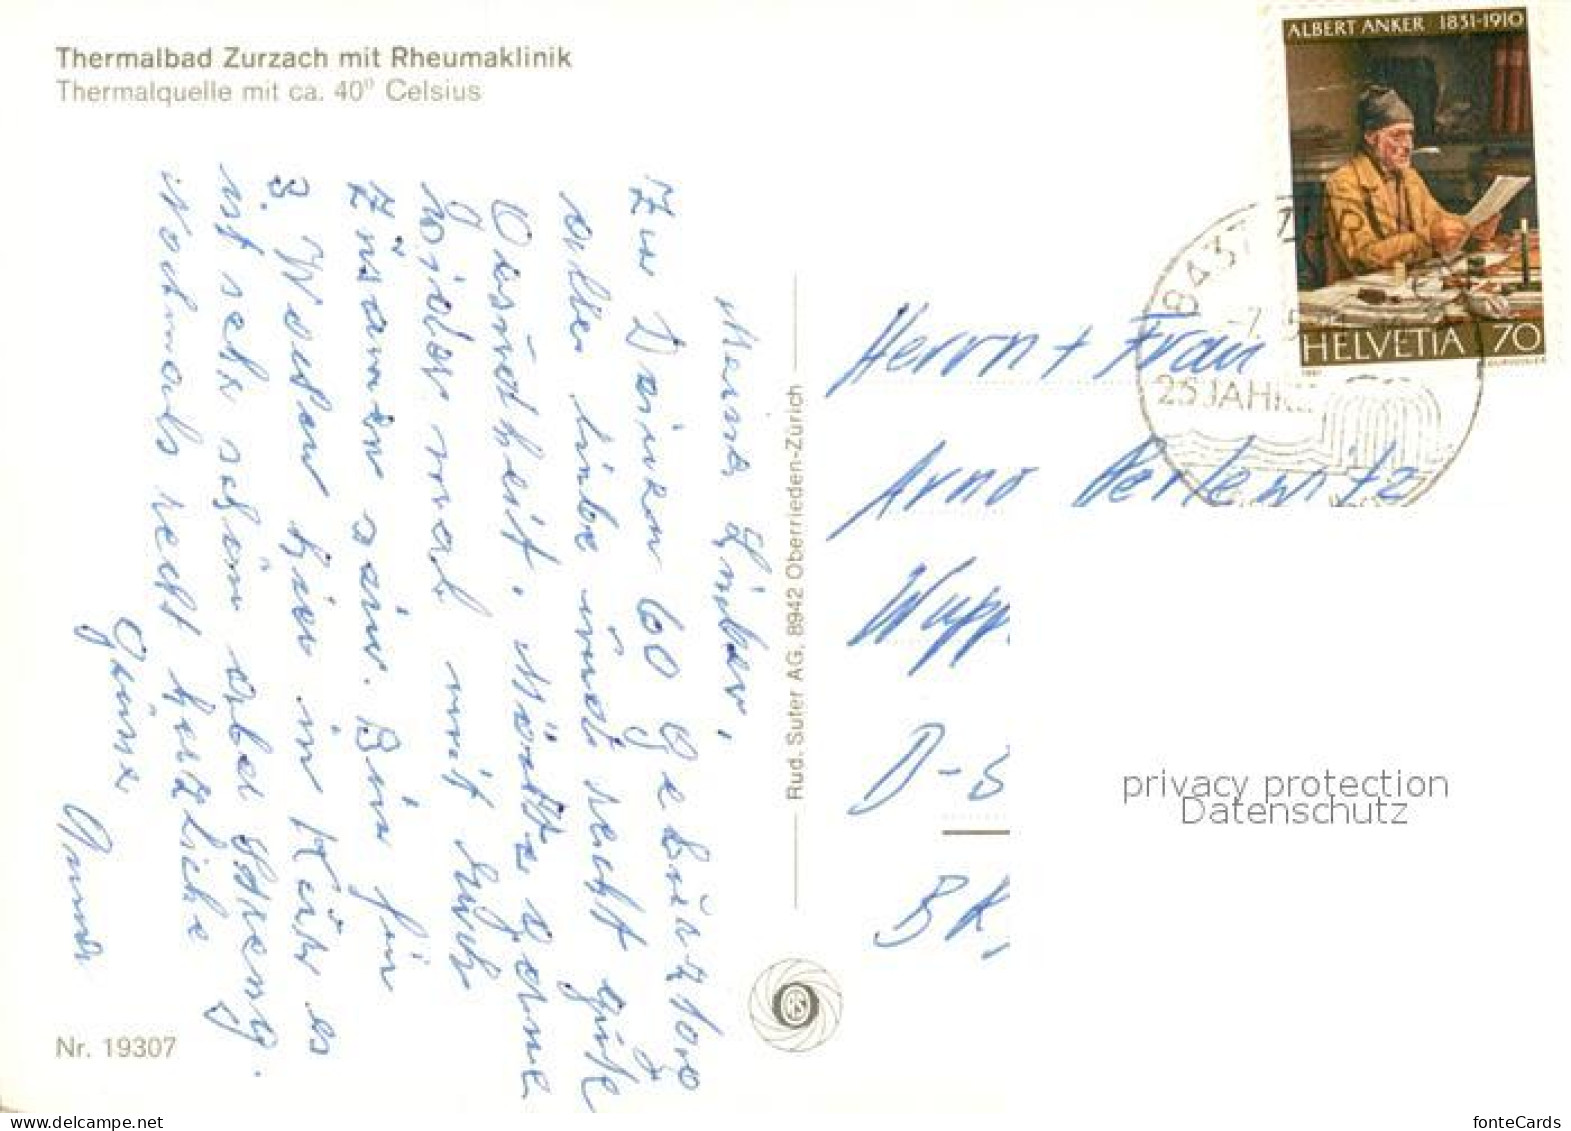 Thermalbad Zurzach mit Rheumaklinik
Thermalquelle mit ca. 40° Celsius
Meine Lieben,
Zu Deinem 60 Geburtstag
alles liebe und recht gute
Gesundheit. Möchte gerne
wieder mal mit Euch
zusammen sein. Bin für
3. Wochen hier in Kur es
ist sehr schön aber streng.
Nochmals recht herzliche
Grüsse
Nr. 19307
Rud. Suter AG, 8942 Oberrieden-Zürich
RS
ALBERT ANKER 1831-1910
HELVETIA 70
COURVOISIER
8437
25 JAHRE
Herrn + Frau
Arno Perlewitz
Wupp
D-5
BK,
privacy protection
Datenschutz
www.delcampe.net
fonteCards